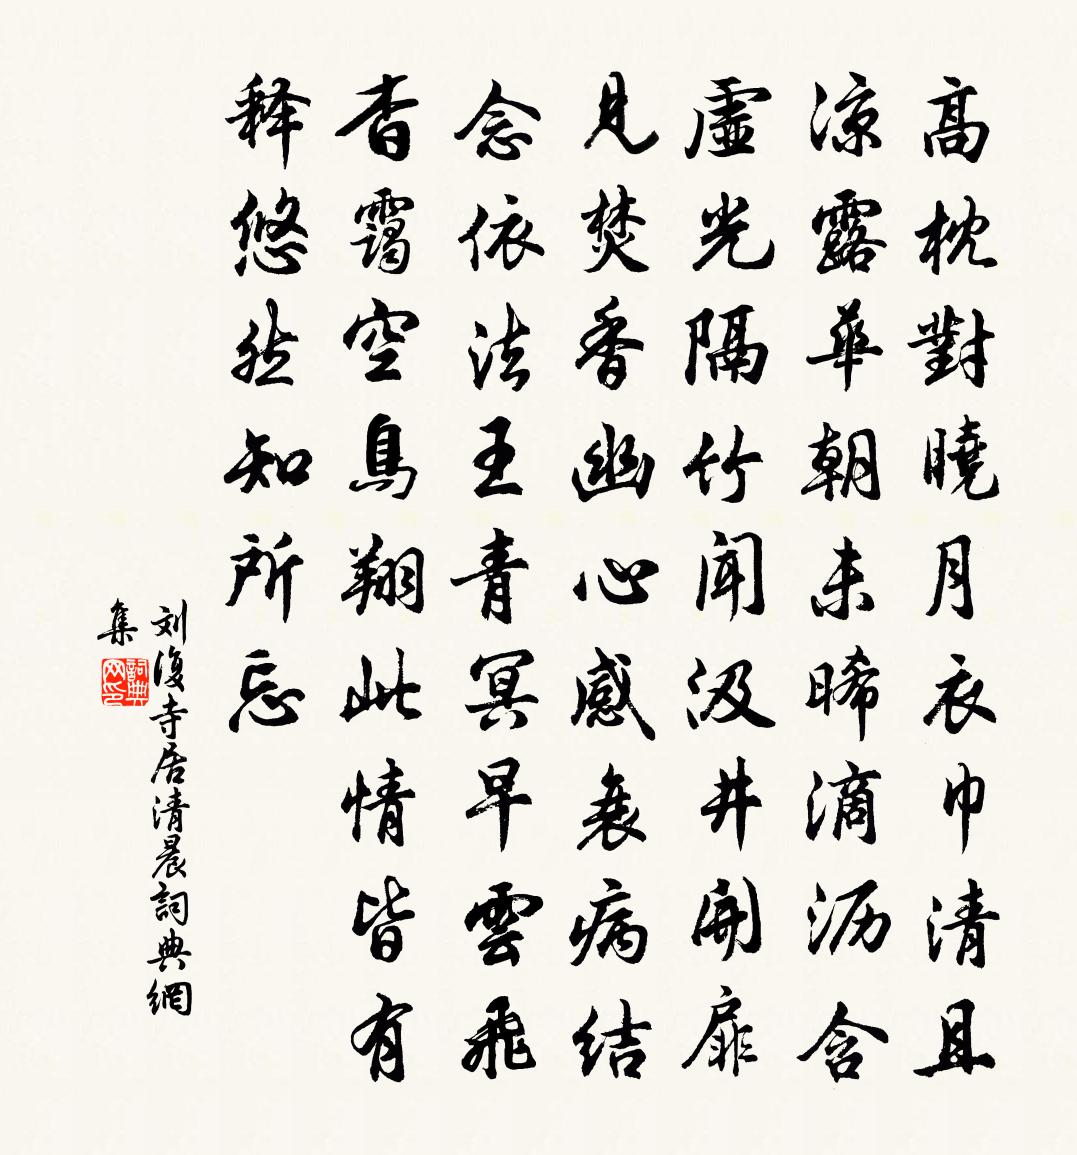 高枕對曉月衣巾清且
凉露華朝未晞滴沥含
虛光隔竹聞汲井開扉
見焚香幽心感衰病结
念依法王青冥早雲飛
杳靄空鳥翔此情皆有
释悠然知所忘
刘復寺居清晨詞典網
集
詞典网印